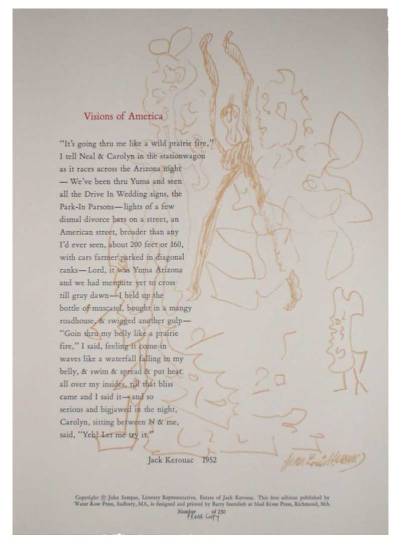 Visions of America
"It's going thru me like a wild prairie fire,"
I tell Neal & Carolyn in the stationwagon
as it races across the Arizona night
— We've been thru Yuma and seen
all the Drive In Wedding signs, the
Park-In Parsons—lights of a few
dismal divorce bars on a street, an
American street, broader than any
I'd ever seen, about 200 feet or 160,
with cars farmer parked in diagonal
ranks—Lord, it was Yuma Arizona
and we had mesquite yet to cross
till gray dawn—I held up the
bottle of muscatel, bought in a mangy
roadhouse, & swigged another gulp—
"Goin thru my belly like a prairie
fire," I said, feeling it come in
waves like a waterfall falling in my
belly, & swim & spread & put heat
all over my insides, till that bliss
came and I said it—and so
serious and bigjawed in the night,
Carolyn, sitting between N & me,
said, "Yeh! Let me try it."
Jack Kerouac 1952
Copyright © John Sampas, Literary Representative, Estate of Jack Kerouac. This first edition published by
Water Row Press, Sudbury, MA, is designed and printed by Barry Sternlieb at Mad River Press, Richmond, MA.
Number of 250